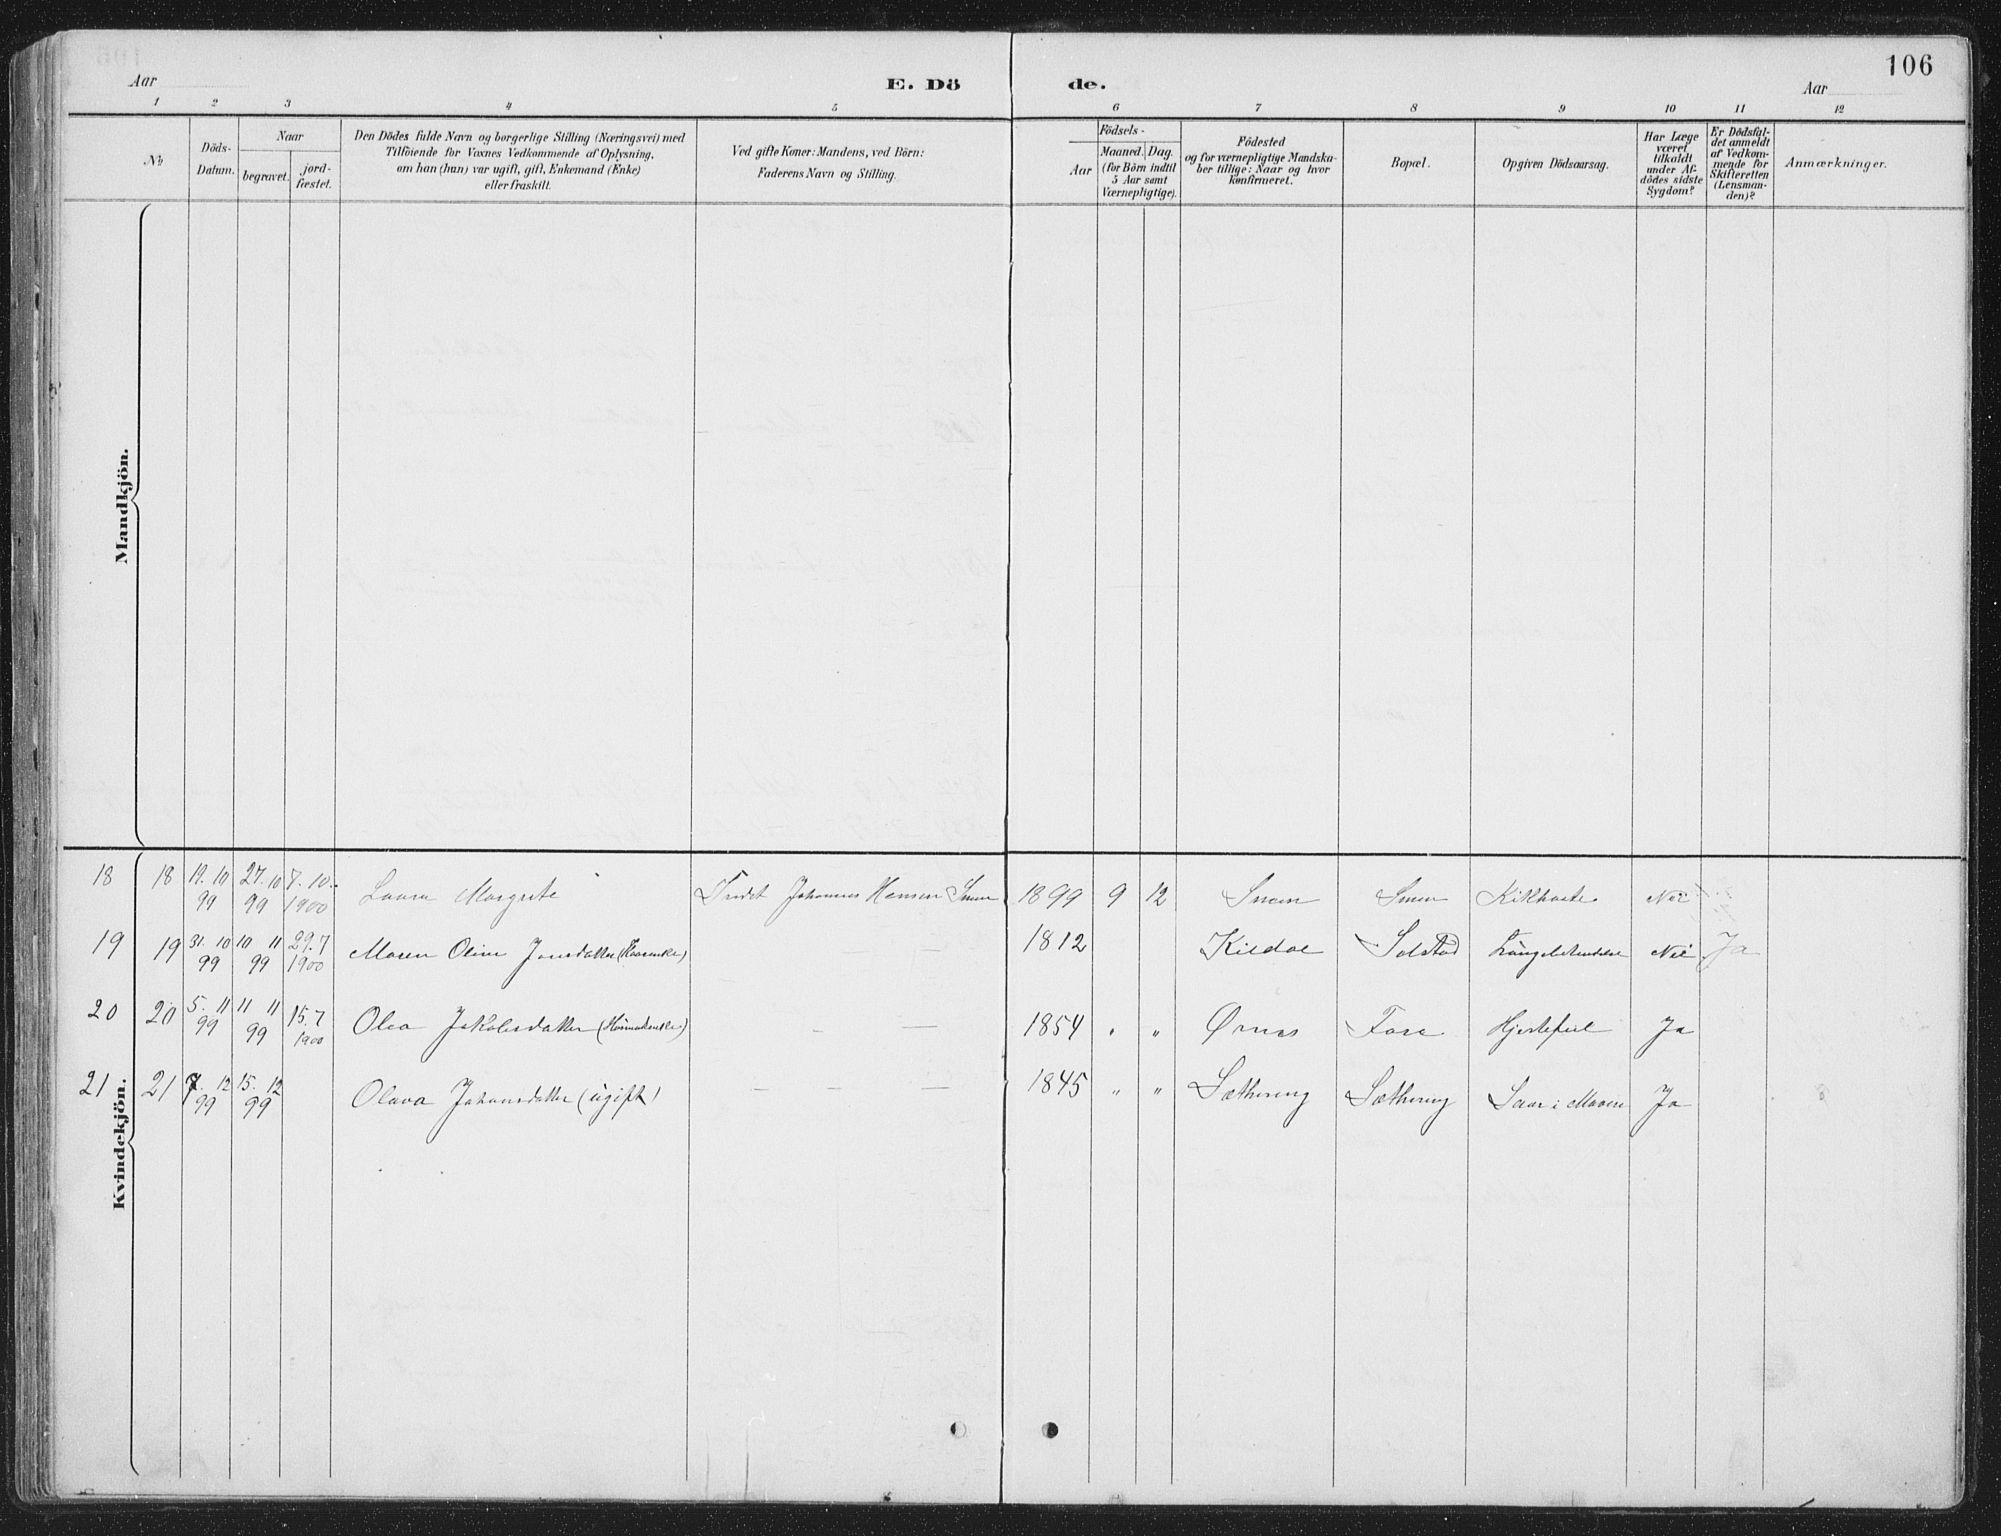 106
Aar
E. Dö
de.
Aar
1 2 3 4 5 6 7 8 9 10 11 12
No
Döds-
Datum.
Naar
begravet.
jord-
fæstet.
Den Dödes fulde Navn og borgerlige Stilling (Næringsvei) med
Tilföiende for Voxnes Vedkommende af Oplysning,
om han (hun) var ugift, gift, Enkemand (Enke)
eller fraskilt.
Ved gifte Koner: Mandens, ved Börn:
Faderens Navn og Stilling.
Födsels-
Aar
Maaned. Dag.
(for Börn indtil
5 Aar samt
Værnepligtige).
Födested
og for værnepligtige Mandska-
ber tillige: Naar og hvor
konfirmeret.
Bopæl.
Opgiven Dödsaarsag.
Har Læge
været
tilkaldt
under Af-
dödes sidste
Sygdom?
Er Dödsfal-
det anmeldt
af Vedkom-
mende for
Skifteretten
(Lensman-
den)?
Anmærkninger.
Mandkjön.
Kvindekjön.
18 18 19. 10 99 27. 10 99 7. 10. 1900 Laura Margrete Johannes Hansen Smen 1899 9 12 Smen Smen Kikhoste Nei
19 19 31. 10 99 10 11 99 29. 7 1900 Maren Oline Jonsdatter 1812 Kildal Solstad Nei Ja
20 20 5. 11 99 11 11 99 15. 7 1900 Olea Jakobsdatter 1854 " " Ørnes Fore Hjertefeil Ja
21 21 7. 12 99 15. 12 99 Olava Johansdatter (ugift) 1845 " " Sæthereng Sæthereng Saar i Maven Ja